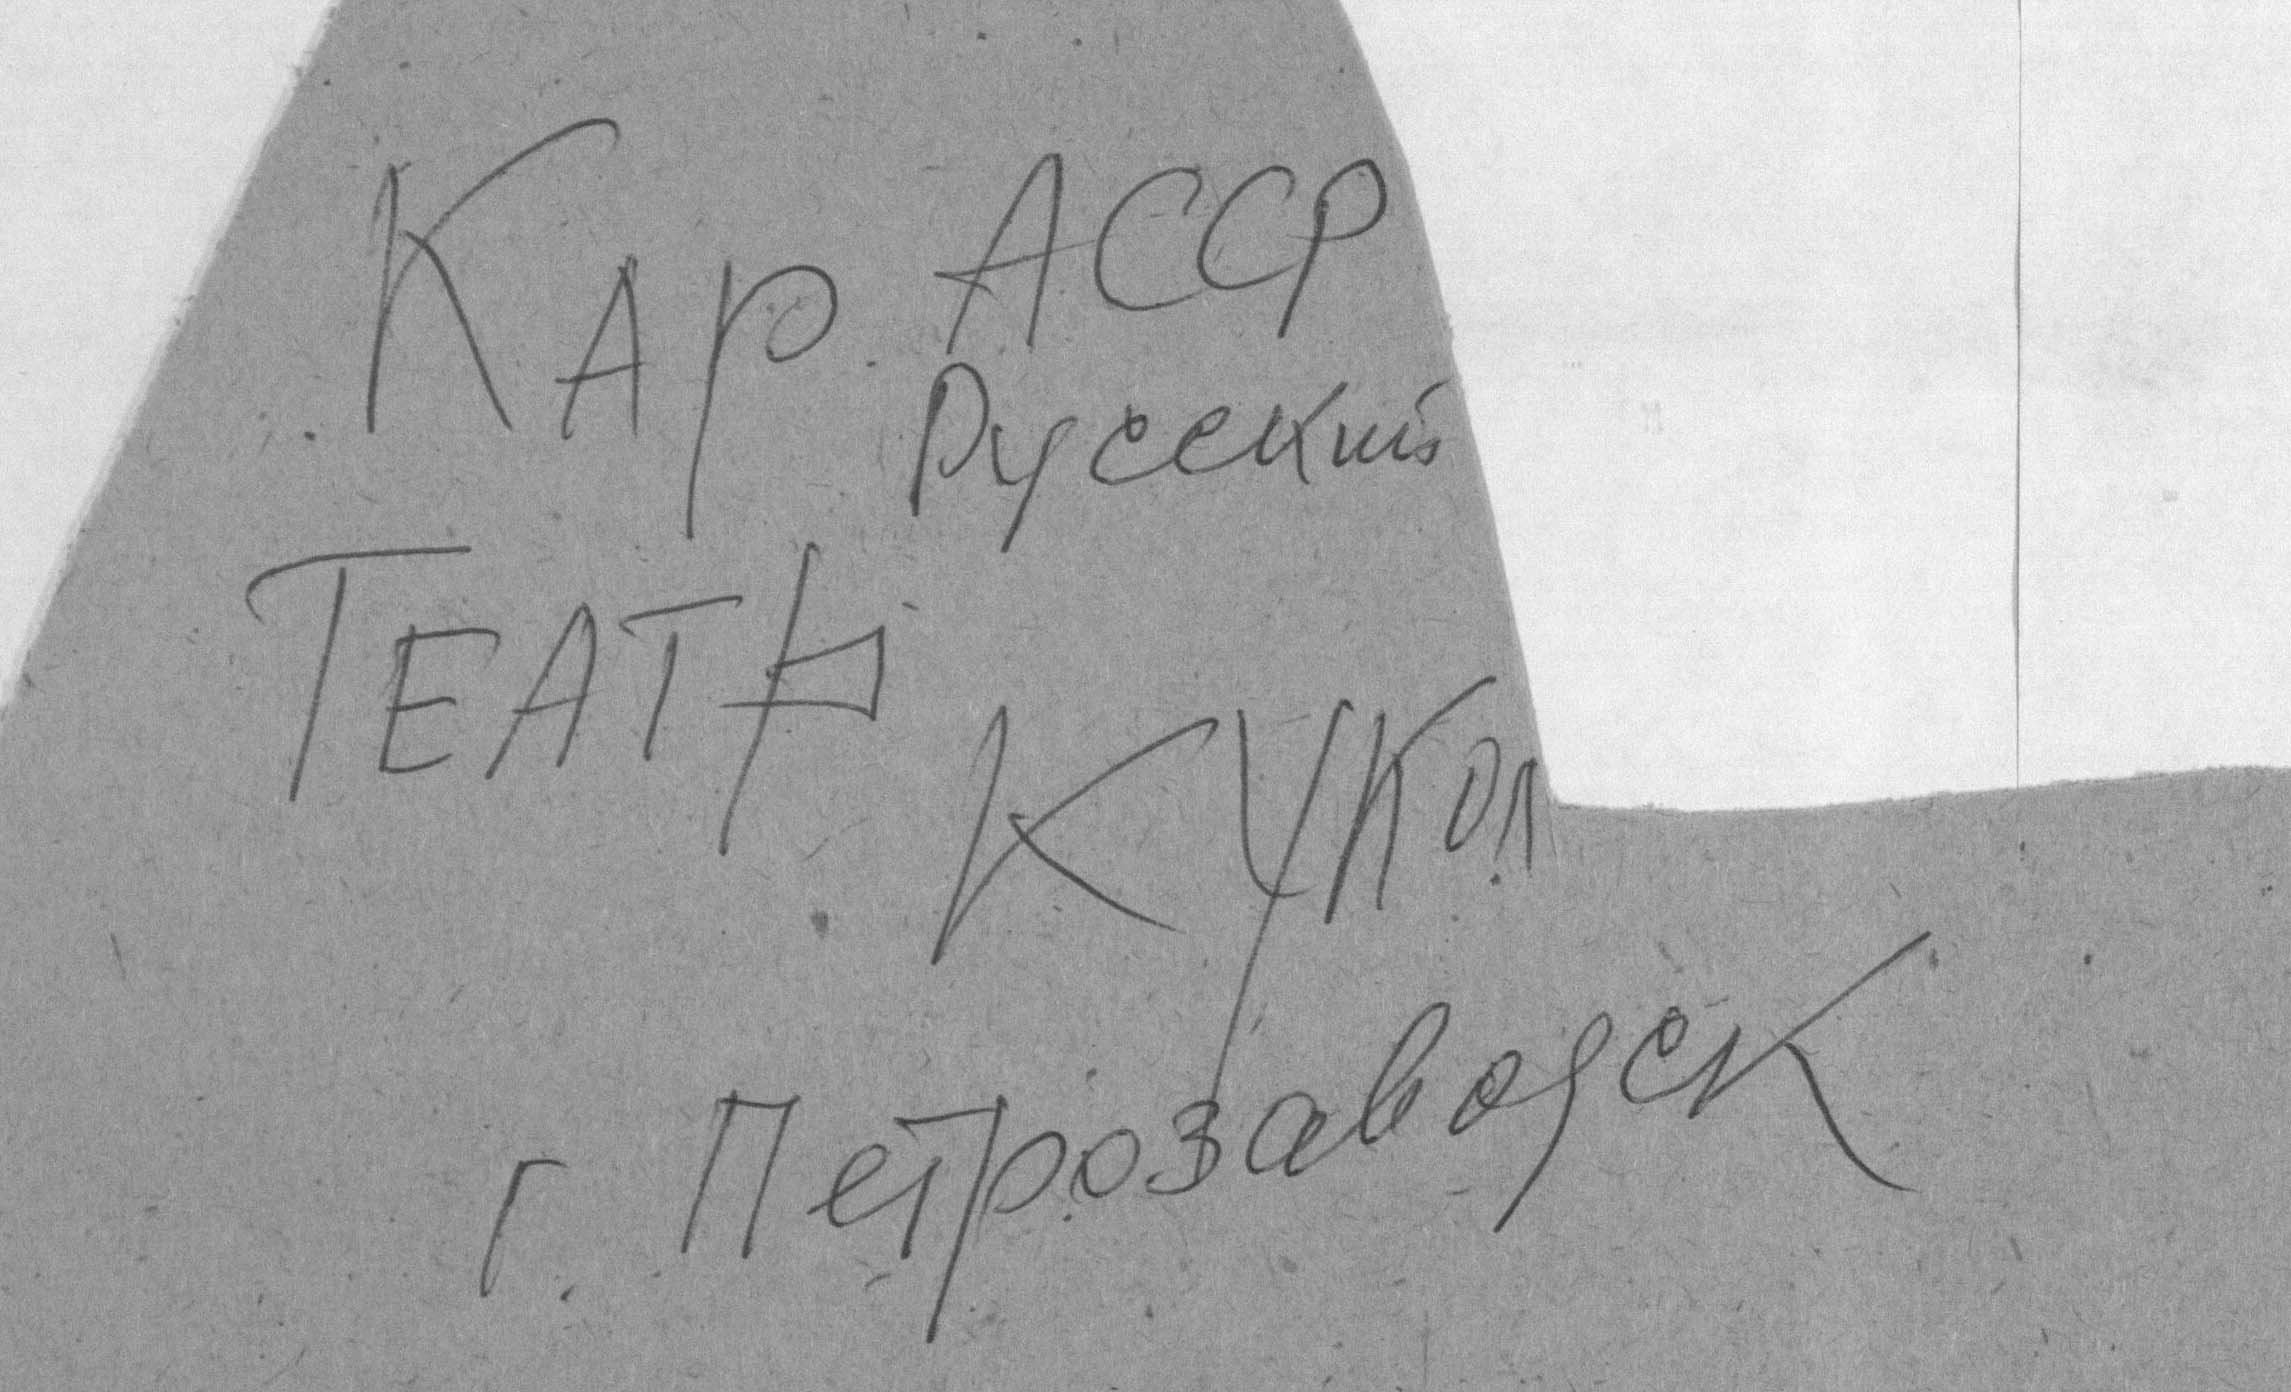 Кар. АССР
Русский
ТЕАТР
КУКОЛ
г. Петрозаводск